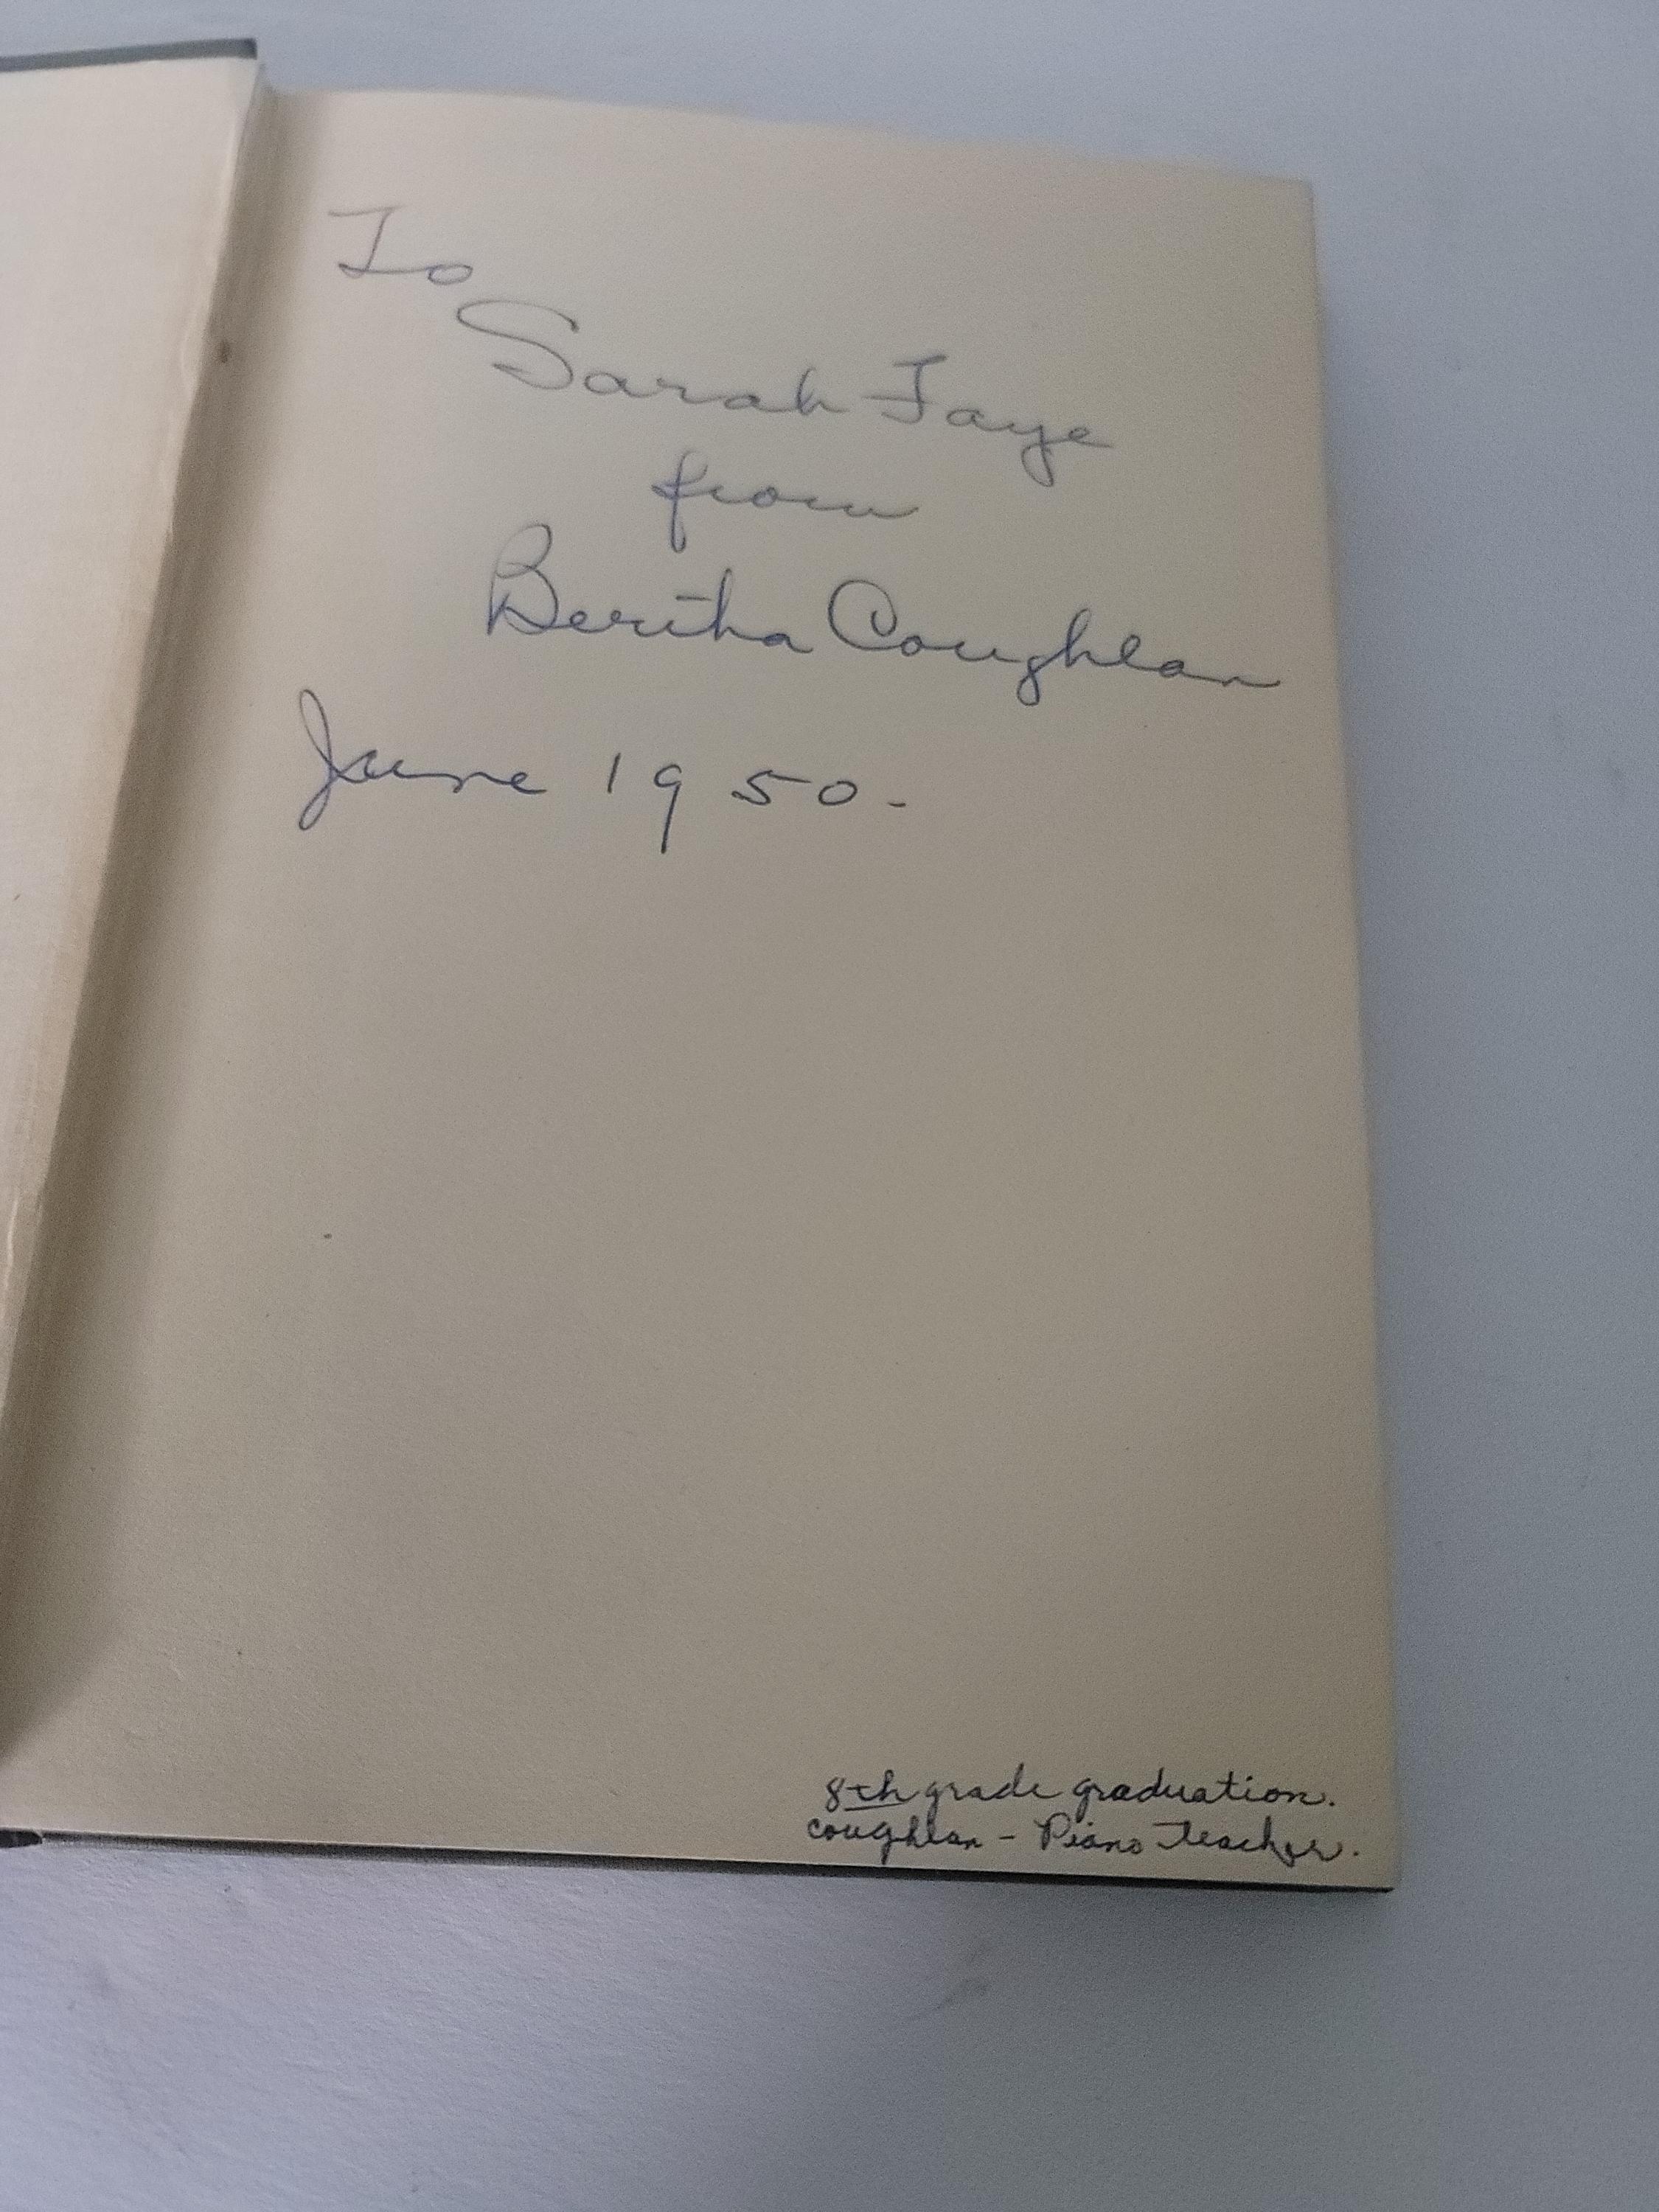 To
Sarah Faye
from
Bertha Coughlan
June 1950.
8th grade graduation.
Coughlan - Piano Teacher.